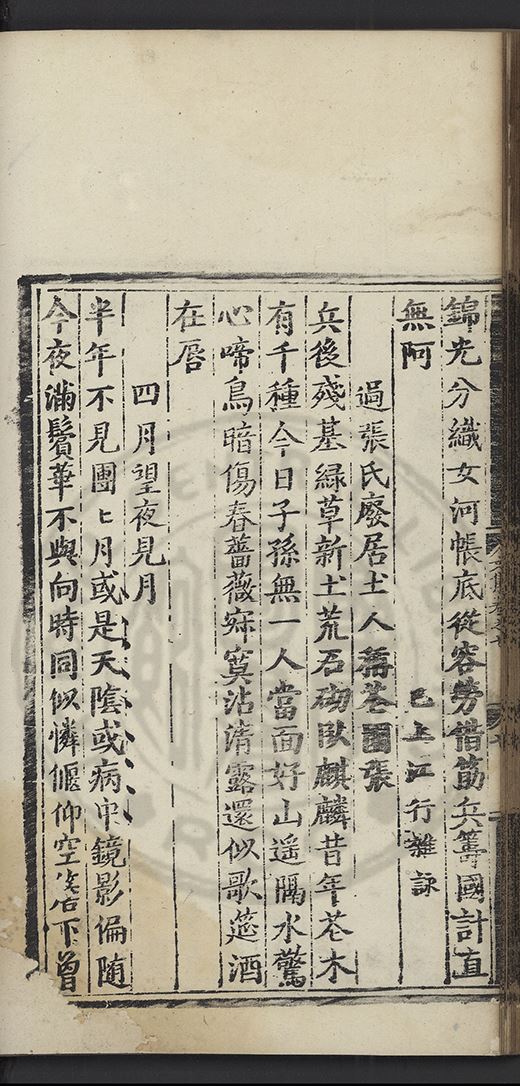 錦光分織女河帳底從容勞借筯兵籌國計直
無阿　已上江行雜詠
過張氏廢居土人稱花園張
兵後殘基緑草新土荒石砌臥麒麟昔年花木
有千種今日子孫無一人當面好山遥隔水驚
心啼鳥暗傷春薔薇寂寞沾清露還似歌筵酒
在唇
四月望夜見月
半年不見團匕月或是天隂或病中鏡影偏随
今夜滿鬢華不與向時同似憐偃仰空⺮下曾